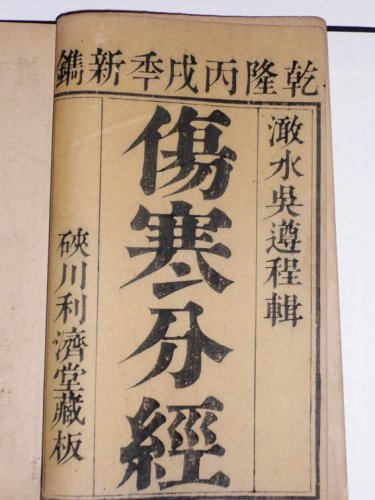 乾隆丙戌季新鐫
澉水吳遵程輯
傷寒分經
硤川利濟堂藏板